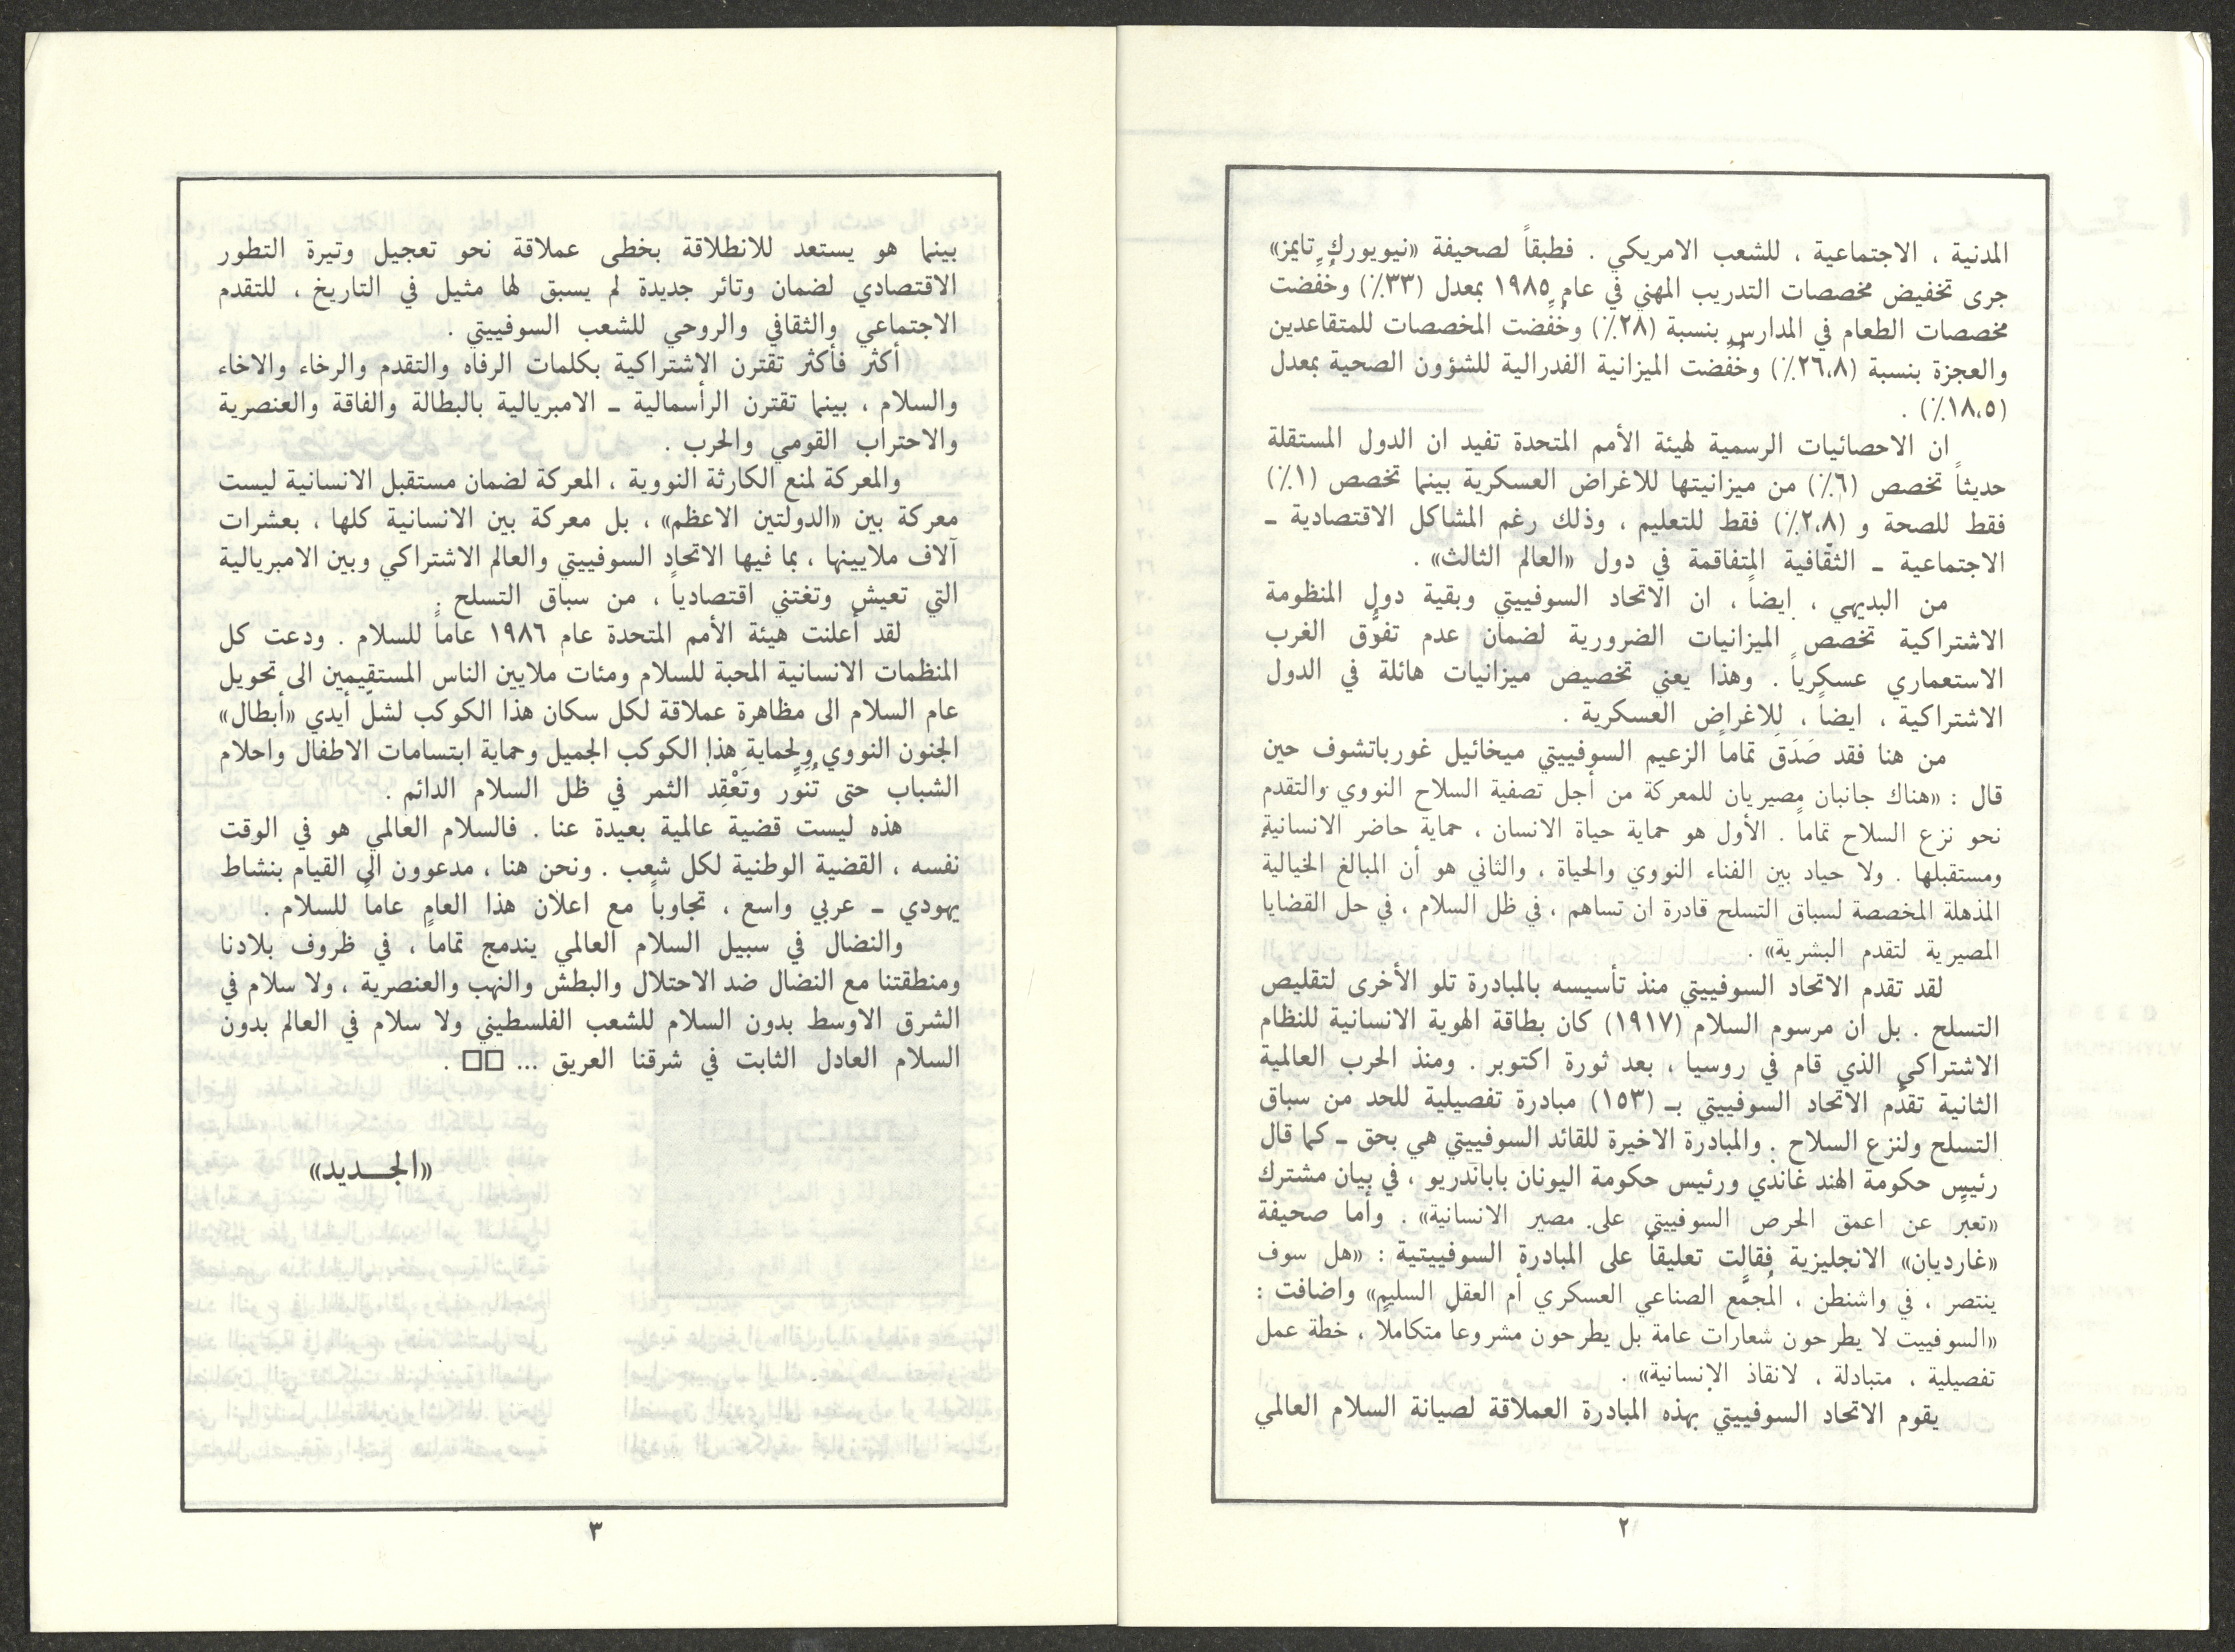 المدنية ، الاجتماعية ، للشعب الامريكي . فطبقاً لصحيفة «نيويورك تايمز»
جرى تخفيض مخصصات التدريب المهني في عام ١٩٨٥ بمعدل (٣٣٪) وخُفِّضت
مخصصات الطعام في المدارس بنسبة (٢٨٪) وخُفِّضت المخصصات للمتقاعدين
والعجزة بنسبة (٢٦،٨٪) وخُفِّضت الميزانية الفدرالية للشؤون الصحية بمعدل
(١٨،٥٪) .
ان الاحصائيات الرسمية لهيئة الأمم المتحدة تفيد ان الدول المستقلة
حديثاً تخصص (٦٪) من ميزانيتها للاغراض العسكرية بينما تخصص (١٪)
فقط للصحة و (٢،٨٪) فقط للتعليم ، وذلك رغم المشاكل الاقتصادية ـ
الاجتماعية ـ الثقافية المتفاقمة في دول «العالم الثالث» .
من البديهي ، ايضاً ، ان الاتحاد السوفييتي وبقية دول المنظومة
الاشتراكية تخصص الميزانيات الضرورية لضمان عدم تفوُّق الغرب
الاستعماري عسكرياً . وهذا يعني تخصيص ميزانيات هائلة في الدول
الاشتراكية ، ايضاً ، للاغراض العسكرية .
من هنا فقد صَدَقَ تماماً الزعيم السوفييتي ميخائيل غورباتشوف حين
قال : «هناك جانبان مصيريان للمعركة من أجل تصفية السلاح النووي والتقدم
نحو نزع السلاح تماماً . الأول هو حماية حياة الانسان ، حماية حاضر الانسانية
ومستقبلها . ولا حياد بين الفناء النووي والحياة ، والثاني هو أن المبالغ الخيالية
المذهلة المخصصة لسباق التسلح قادرة ان تساهم ، في ظل السلام ، في حل القضايا
المصيرية لتقدم البشرية» .
لقد تقدم الاتحاد السوفييتي منذ تأسيسه بالمبادرة تلو الأخرى لتقليص
التسلح . بل ان مرسوم السلام (١٩١٧) كان بطاقة الهوية الانسانية للنظام
الاشتراكي الذي قام في روسيا ، بعد ثورة اكتوبر . ومنذ الحرب العالمية
الثانية تقدَّم الاتحاد السوفييتي بـ (١٥٣) مبادرة تفصيلية للحد من سباق
التسلح ولنزع السلاح . والمبادرة الاخيرة للقائد السوفييتي هي بحق ـ كما قال
رئيس حكومة الهند غاندي ورئيس حكومة اليونان باباندريو ، في بيان مشترك
«تعبر عن اعمق الحرص السوفييتي على مصير الانسانية» . وأما صحيفة
«غارديان» الانجليزية فقالت تعليقاً على المبادرة السوفييتية : «هل سوف
ينتصر ، في واشنطن ، المُجمَّع الصناعي العسكري أم العقل السليم» واضافت :
«السوفييت لا يطرحون شعارات عامة بل يطرحون مشروعاً متكاملاً ، خطة عمل
تفصيلية ، متبادلة ، لانقاذ الإنسانية» .
يقوم الاتحاد السوفييتي بهذه المبادرة العملاقة لصيانة السلام العالمي
٢
بينما هو يستعد للانطلاقة بخطى عملاقة نحو تعجيل وتيرة التطور
الاقتصادي لضمان وتائر جديدة لم يسبق لها مثيل في التاريخ ، للتقدم
الاجتماعي والثقافي والروحي للشعب السوفييتي .
أكثر فأكثر تقترن الاشتراكية بكلمات الرفاه والتقدم والرخاء والاخاء
والسلام ، بينما تقترن الرأسمالية ـ الامبريالية بالبطالة والفاقة والعنصرية
والاحتراب القومي والحرب .
والمعركة لمنع الكارثة النووية ، المعركة لضمان مستقبل الانسانية ليست
معركة بين «الدولتين الاعظم» ، بل معركة بين الانسانية كلها ، بعشرات
آلاف ملايينها ، بما فيها الاتحاد السوفييتي والعالم الاشتراكي وبين الامبريالية
التي تعيش وتغتني اقتصادياً ، من سباق التسلح .
لقد أعلنت هيئة الأمم المتحدة عام ١٩٨٦ عاماً للسلام . ودعت كل
المنظمات الانسانية المحبة للسلام ومئات ملايين الناس المستقيمين الى تحويل
عام السلام الى مظاهرة عملاقة لكل سكان هذا الكوكب لشلّ أيدي «أبطال»
الجنون النووي ولحماية هذا الكوكب الجميل وحماية ابتسامات الاطفال واحلام
الشباب حتى تُنَوِّر وتَعْقِد الثمر في ظل السلام الدائم .
هذه ليست قضية عالمية بعيدة عنا . فالسلام العالمي هو في الوقت
نفسه ، القضية الوطنية لكل شعب . ونحن هنا ، مدعوون الى القيام بنشاط
يهودي ـ عربي واسع ، تجاوباً مع اعلان هذا العام عاماً للسلام .
والنضال في سبيل السلام العالمي يندمج تماماً ، في ظروف بلادنا
ومنطقتنا مع النضال ضد الاحتلال والبطش والنهب والعنصرية ، ولا سلام في
الشرق الاوسط بدون السلام للشعب الفلسطيني ولا سلام في العالم بدون
السلام العادل الثابت في شرقنا العريق ... □□ .
«الجـــديد»
٣